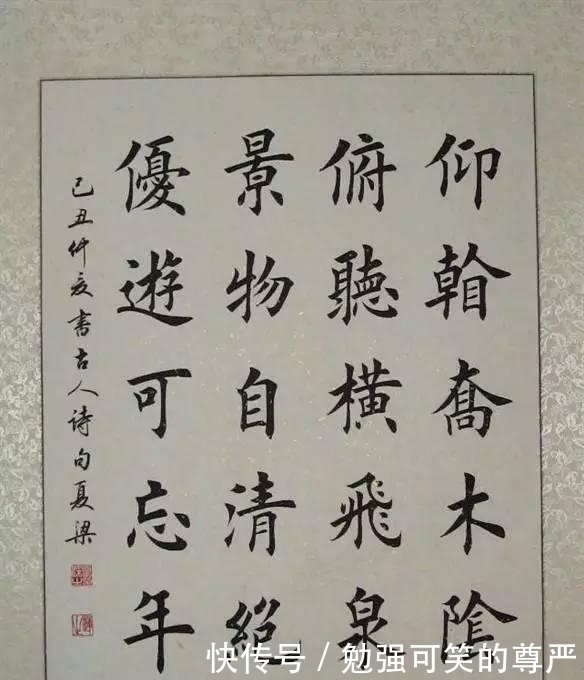 仰喬木陰
俯聽橫飛泉
景物自清絕
優遊可忘年
己丑仲夏書古人诗句夏梁
快传号/勉强可笑的尊严